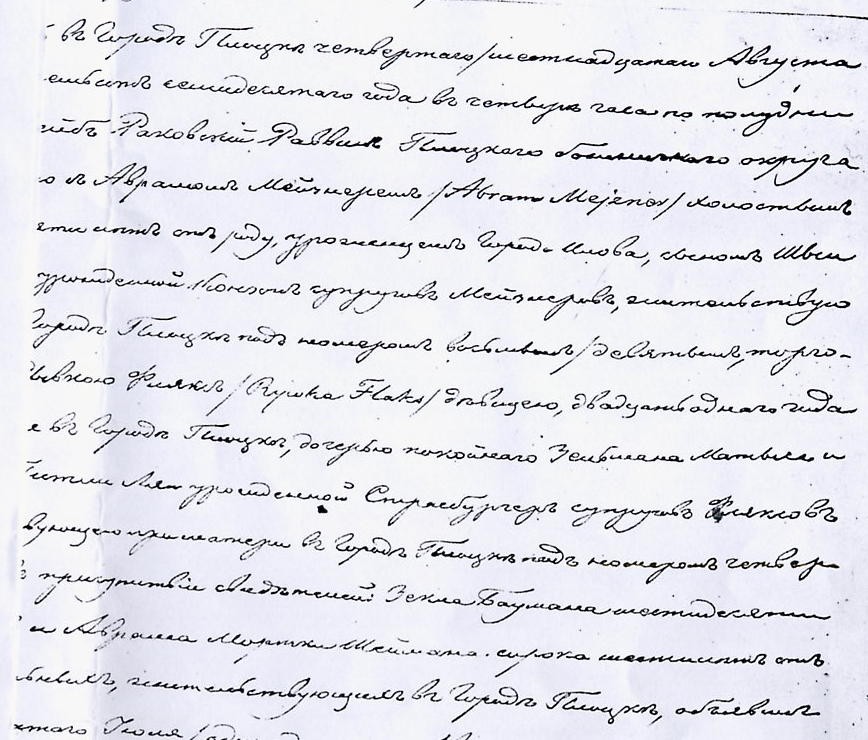 въ Городѣ Плоцкѣ четвертаго/шестнадцатаго Августа
семидесятаго года въ четыре часа по полудни
Раковскій Раввинъ Плоцкаго божничнаго округа
Абрамомъ Мейзнеромъ /Abram Mejzner/ холостымъ
лѣтъ отъ роду, уроженцемъ Города сыномъ
урожденной супруговъ Мейзнеровъ, жительствую
Городѣ Плоцкѣ подъ номеромъ восьмымъ/девятымъ, торго-
Ривкою Флякъ /Rywka Flaks/ дѣвицею, двадцать одного года
въ Городѣ Плоцкѣ, дочерью покойнаго Зельмана и
урожденной Страсбургеръ супруговъ Фляковъ
вующею при матери въ Городѣ Плоцкѣ подъ номеромъ четвер
присутствіи свидѣтелей: Баумана шестидесяти
и Абрама Мортки Шеймана сорока шести лѣтъ отъ
жительствующихъ въ Городѣ Плоцкѣ, объявилъ
Іюля